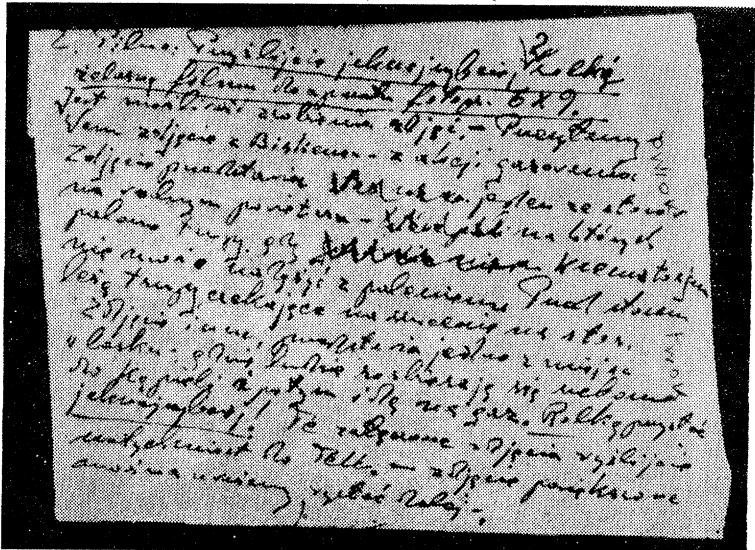 Pilne. Przyślijcie jaknajszybciej 2 rolki
żelazne filmu do aparatu fotogr. 6x9.
Jest możliwość zrobienia zdjęć. – Przesyłamy
Wam zdjęcia z Birkenau – z akcji gazowania.
Zdjęcie przedstawia jeden ze stosów
na wolnym powietrzu – na których
palono trupy, gdy krematorjum
nie może nadążyć z paleniem. Przed stosem
leżą trupy czekające na wrzucenie na stos.
Zdjęcie inne, przedstawia jedno z miejsc
w lasku, gdzie ludzie rozbierają się rzekomo
do kąpieli, a potym idą na gaz. Rolkę
jaknajszybciej! Te załączone zdjęcia wyślijcie
natychmiast do Tell. – zdjęcie powiększone
można wysłać dalej –.